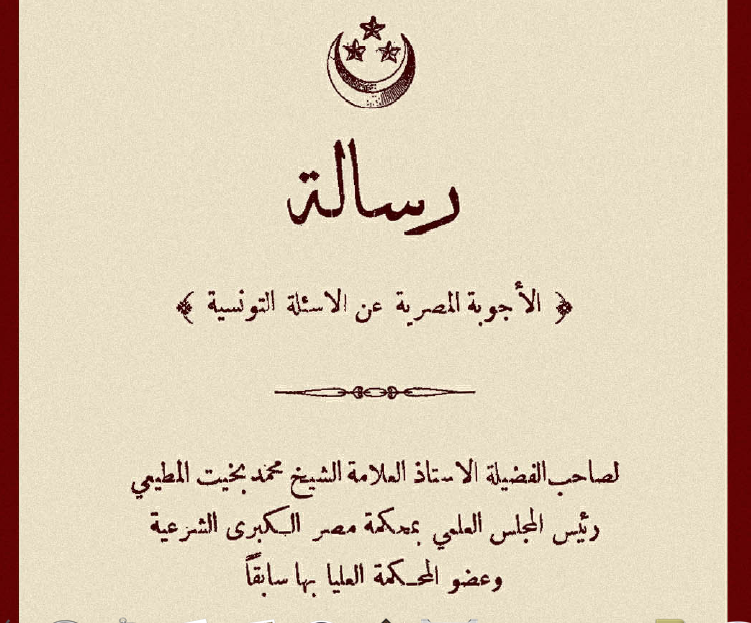 رسالة
﴿ الأجوبة المصرية عن الاسئلة التونسية ﴾
لصاحب الفضيلة الاستاذ العلامة الشيخ محمد بخيت المطيعي
رئيس المجلس العلمي بمحكمة مصر الكبرى الشرعية
وعضو المحكمة العليا بها سابقاً